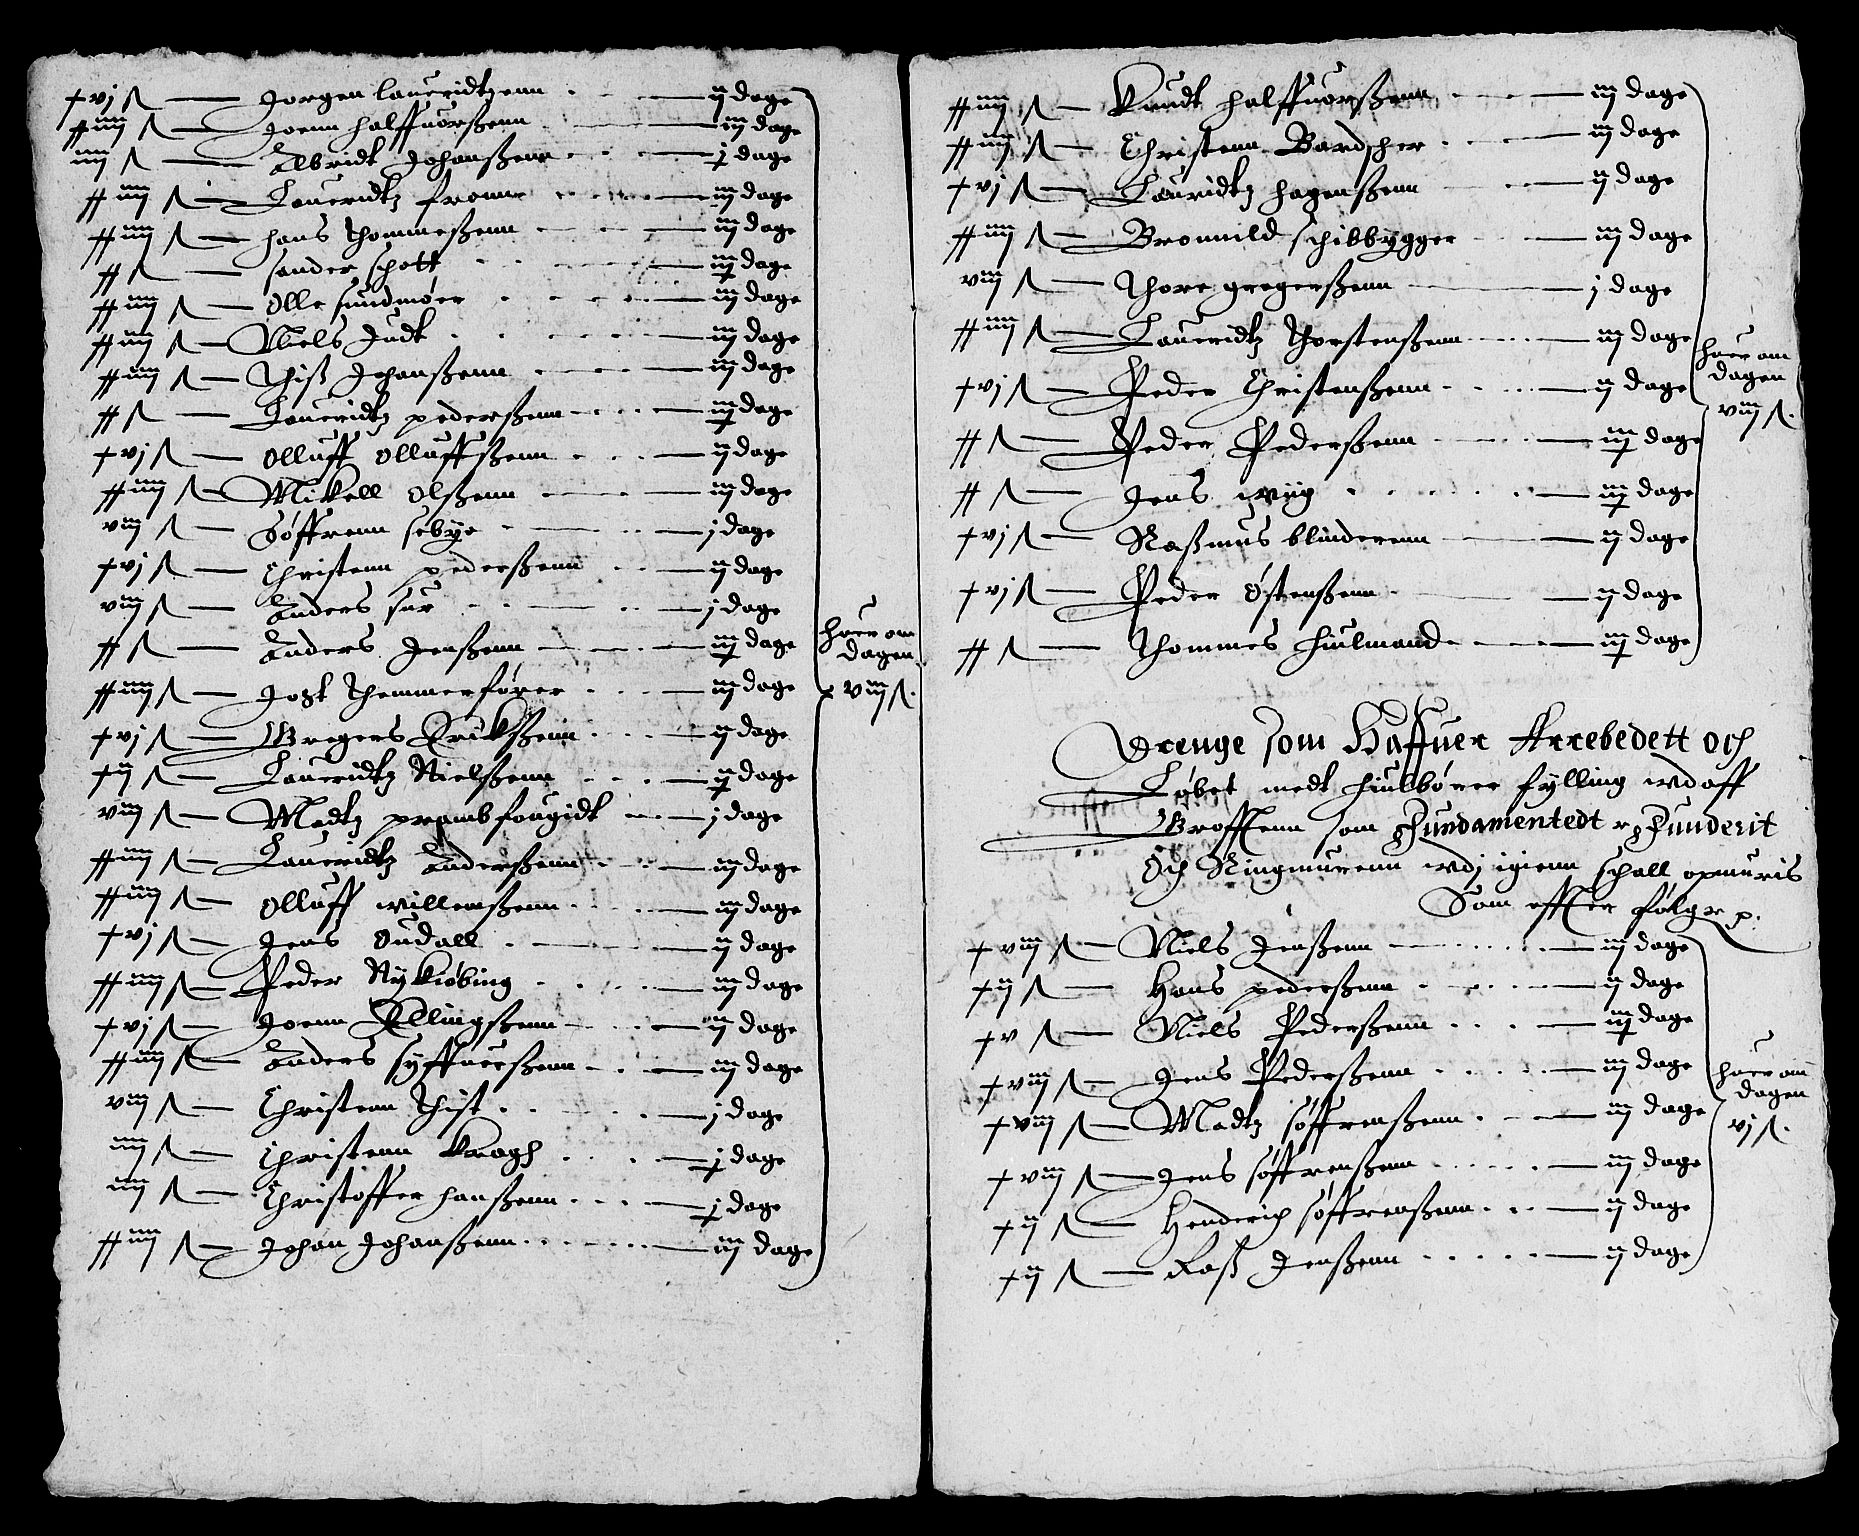 + vj ß — Jorgen lauridtzenn — ij dage
++ iiij ß — Joenn halffuorßenn — iij dage
iiij ß — Albridt Johanßenn — j dage
++ iiij ß — Lauridtz fronn — iij dage
++ iiij ß — hans thommeßenn — iij dage
++ ß — sander schott — iij dage
++ iiij ß — Olle sundmøer — iij dage
++ iiij ß — Niels Judt — iij dage
++ iiij ß — Thiß Johanßenn — iij dage
++ ß — Lauridtz pederßenn — iij dage
+ vj ß — Olluff Olluffßenn — ij dage
++ iiij ß — Mikell Olßenn — iij dage
viij ß — Søffrenn sebye — j dage
+ vj ß — Christenn pederßenn — ij dage
viij ß — Anders sur — j dage
++ ß — Anders Jenßenn — iij dage
++ iiij ß — Jost themmerfører — iij dage
+ vj ß — Gregers Erickßenn — ij dage
+ ij ß — Lauridtz Nielßenn — ij dage
viij ß — Madtz prambfougidt — j dage
++ iiij ß — Lauridtz Anderßenn — iij dage
++ iiij ß — Olluff willemßenn — iij dage
+ vj ß — Jens Oudall — ij dage
++ iiij ß — Peder Nykiøbing — iij dage
+ vj ß — Joenn Ellingßenn — ij dage
++ iiij ß — Anders syffuerßenn — iij dage
viij ß — Christenn Thist — j dage
iiij ß — Christenn Kragh — j dage
iiij ß — Christoffer hanßenn — j dage
++ iiij ß — Johan Johanßenn — iij dage
huer om
dagen
viij ß.
++ iiij ß — Knudt halffuorßenn — iij dage
++ iiij ß — Christenn Bardscher — iij dage
+ vj ß — Lauridtz hagenßenn — ij dage
++ iiij ß — Bronnild schibbygger — iij dage
viij ß — Thore gregerßenn — j dage
++ iiij ß — Lauridtz Thorstenßenn — iij dage
+ vj ß — Peder Christenßenn — ij dage
++ ß — Peder Pederßenn — iij dage
++ ß — Jens wiig — iij dage
+ vj ß — Raßmus blinderenn — ij dage
+ vj ß — Peder Østenßenn — ij dage
++ ß — Thommes hiulmand — iij dage
huer om
dagen
viij ß.
Drenge som Haffuer Arrebedett och
Løbet medt hiulbørrer fylling wdaff
Groffuenn som Fundamentedt er Funderit
Och Ringmurenn wdj igienn schall opmuris
Som effter følger p:
+ viij ß — Niels Jenßenn — iij dage
+ ij ß — Hans pederßenn — ij dage
+ v ß — Niels Pederßenn — iij dage
+ viij ß — Jens Pederßenn — iij dage
+ viij ß — Madtz søffrenßenn — iij dage
+ viij ß — Jens søffrenßenn — iij dage
+ ij ß — Henderich søffrenßenn — ij dage
+ ij ß — Raß Jenßenn — ij dage
huer om
dagen
vj ß.